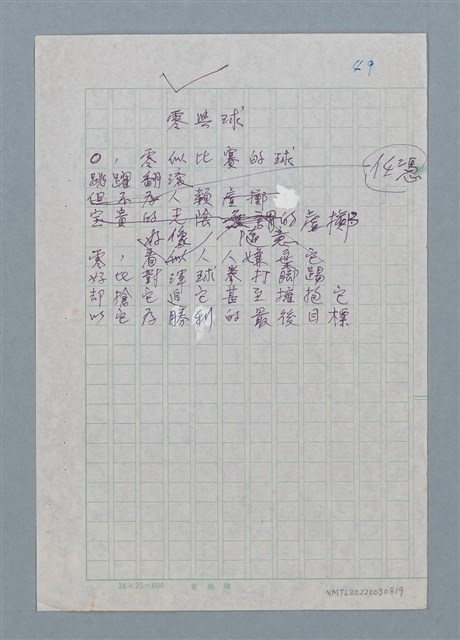 49
零與球
0，零似比賽的球
任憑
跳躍翻滾
但不為人賴虛擲
寶貴的光陰 的虛擲
好像 隨意
零，看似人人嫌棄它
好比對渾球拳打腳踢
却搶它追它甚至擁抱它
以它為勝利的最後目標
24×25=600
NMTL20220030819